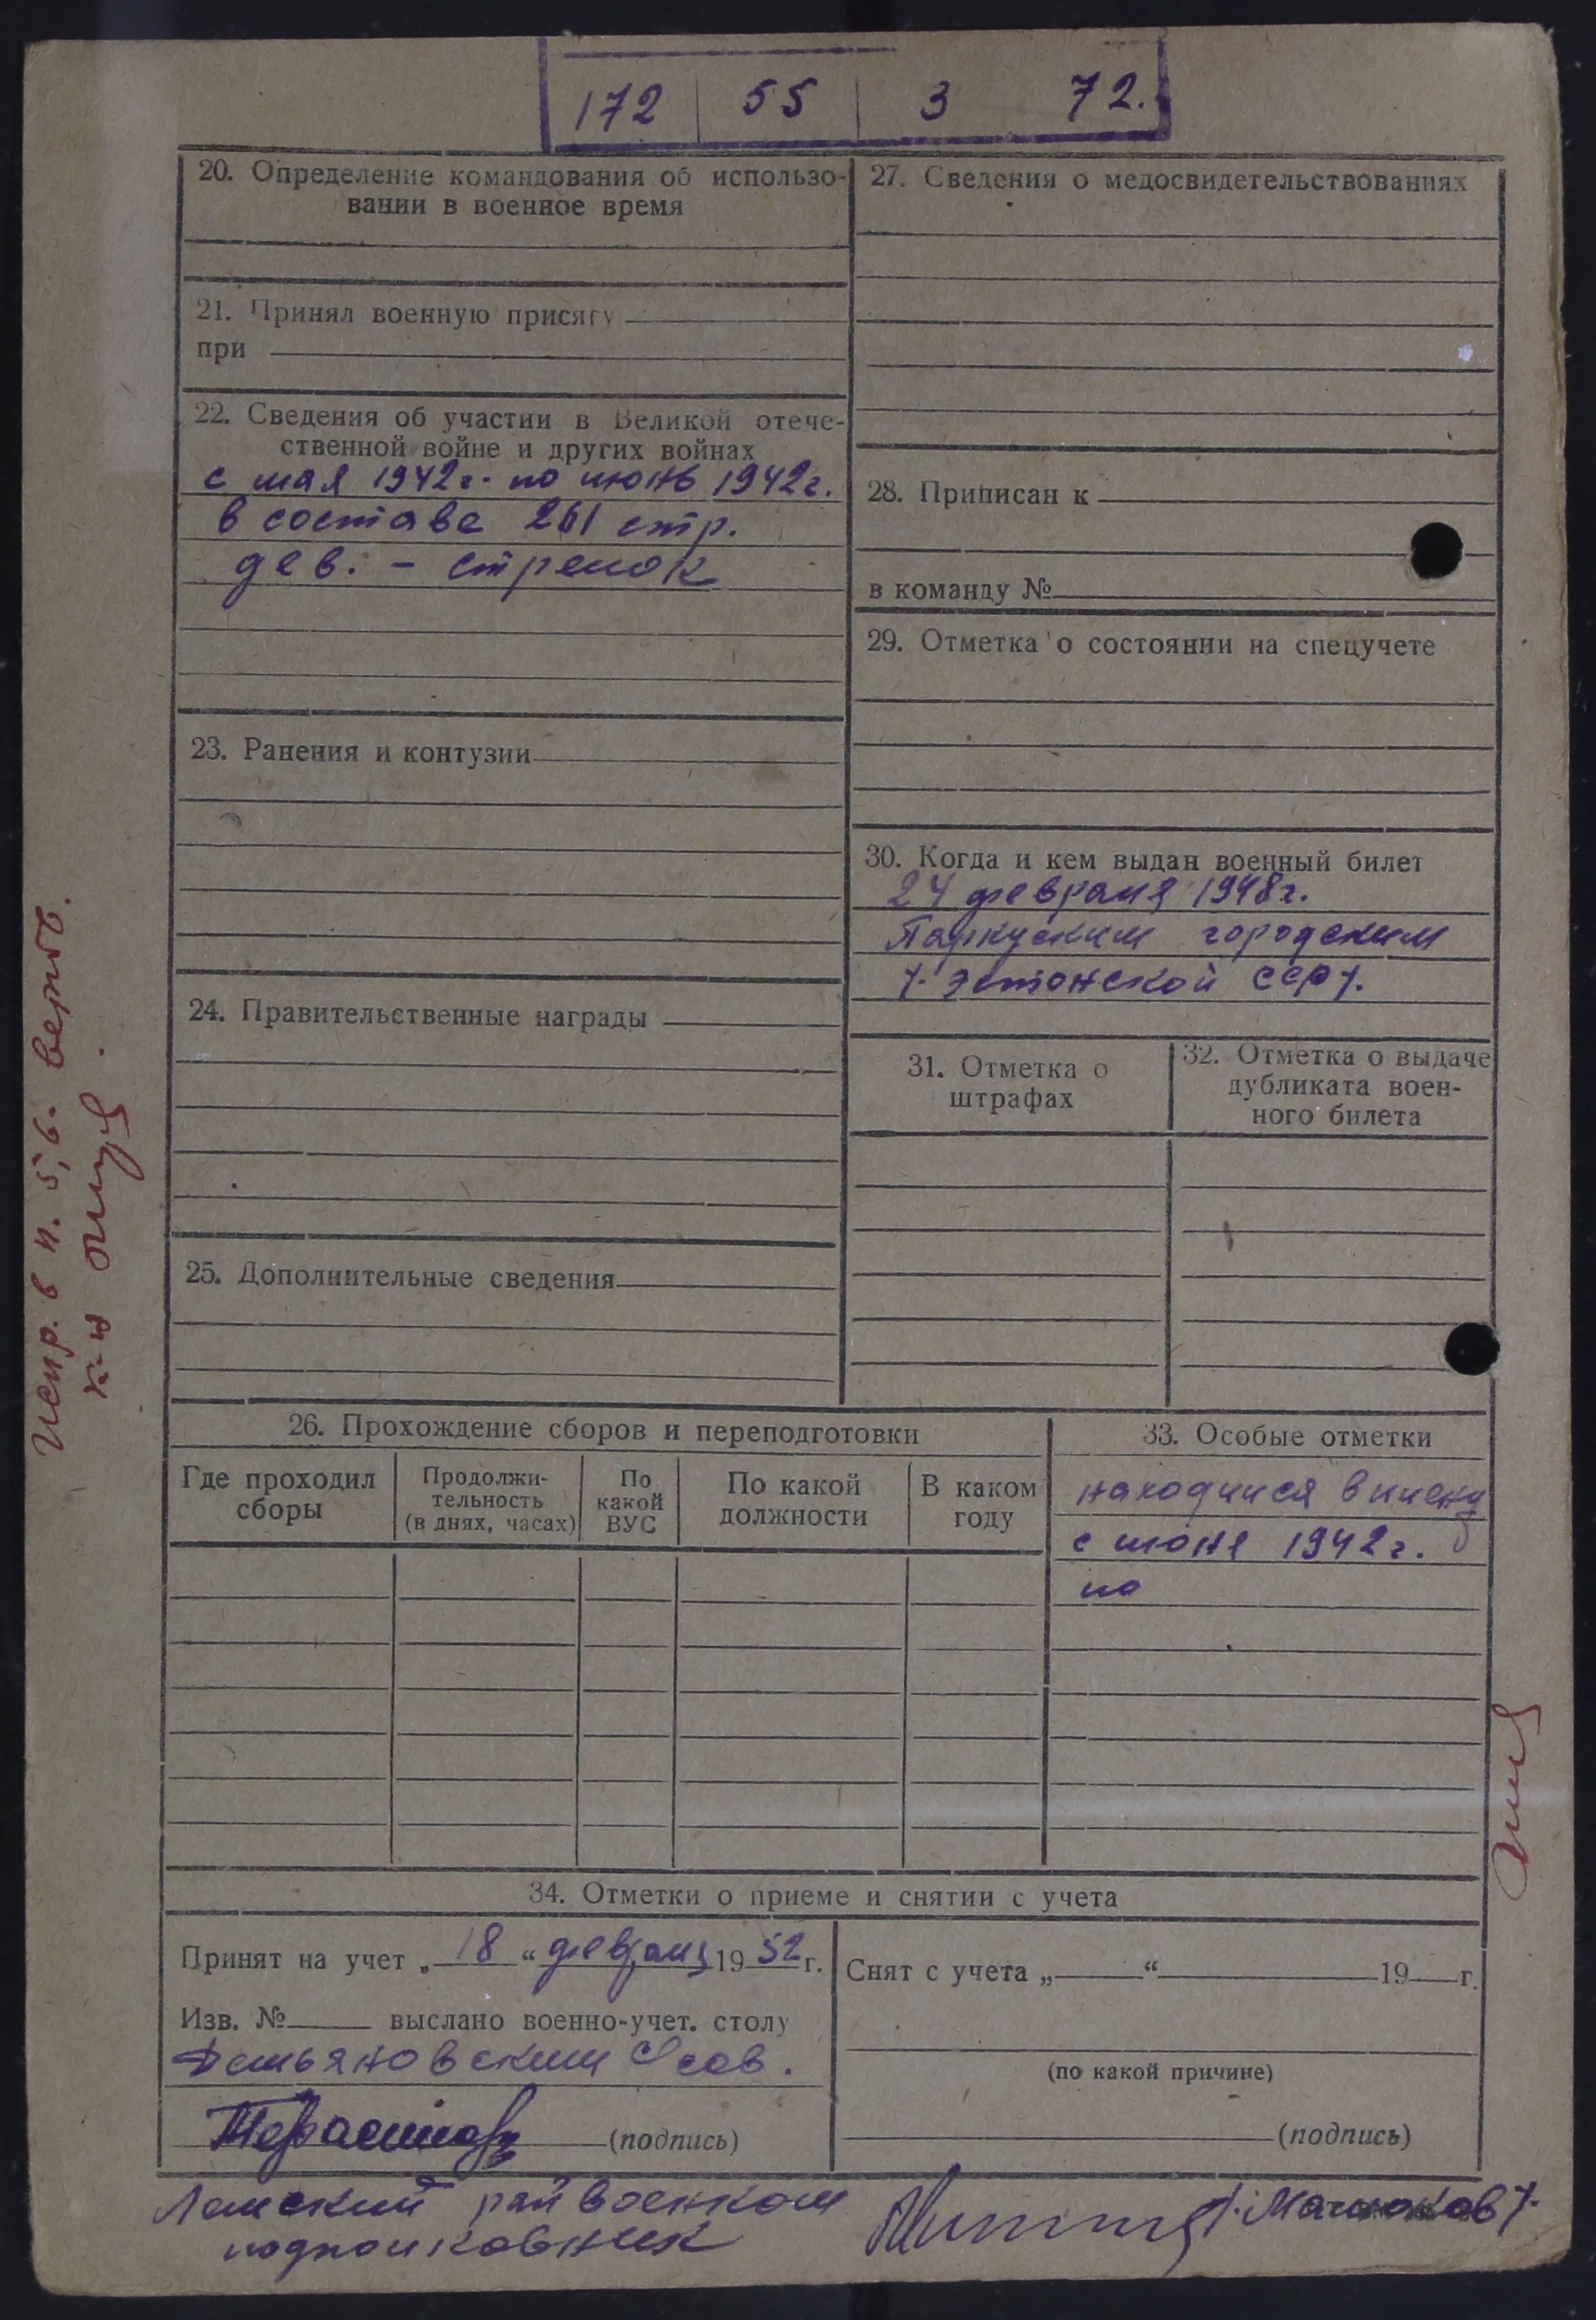 172 55 3 72.
20. Определение командования об использо-
вании в военное время
21. Принял военную присягу
при
22. Сведения об участии в Великой отече-
ственной войне и других войнах
с мая 1942г. по июнь 1942г.
в составе 261 стр.
дев. - стрелок
23. Ранения и контузии
24. Правительственные награды
25. Дополнительные сведения
27. Сведения о медосвидетельствованиях
28. Приписан к
в команду №
29. Отметка о состоянии на спецучете
30. Когда и кем выдан военный билет
24 февраля 1948г.
городским
Эстонской ССР
31. Отметка о
штрафах
32. Отметка о выдаче
дубликата воен-
ного билета
26. Прохождение сборов и переподготовки
Где проходил
сборы
Продолжи-
тельность
(в днях, часах)
По
какой
ВУС
По какой
должности
В каком
году
33. Особые отметки
находился в плену
с июня 1942г.
по
34. Отметки о приеме и снятии с учета
Принят на учет „ 18 “ февраля 1952 г.
Изв. № выслано военно-учет. столу
Демьяновским
(подпись)
Снят с учета „ “ 19 г.
(по какой причине)
(подпись)
райвоенком
подполковник
испр. в п. 5, 6. верно.